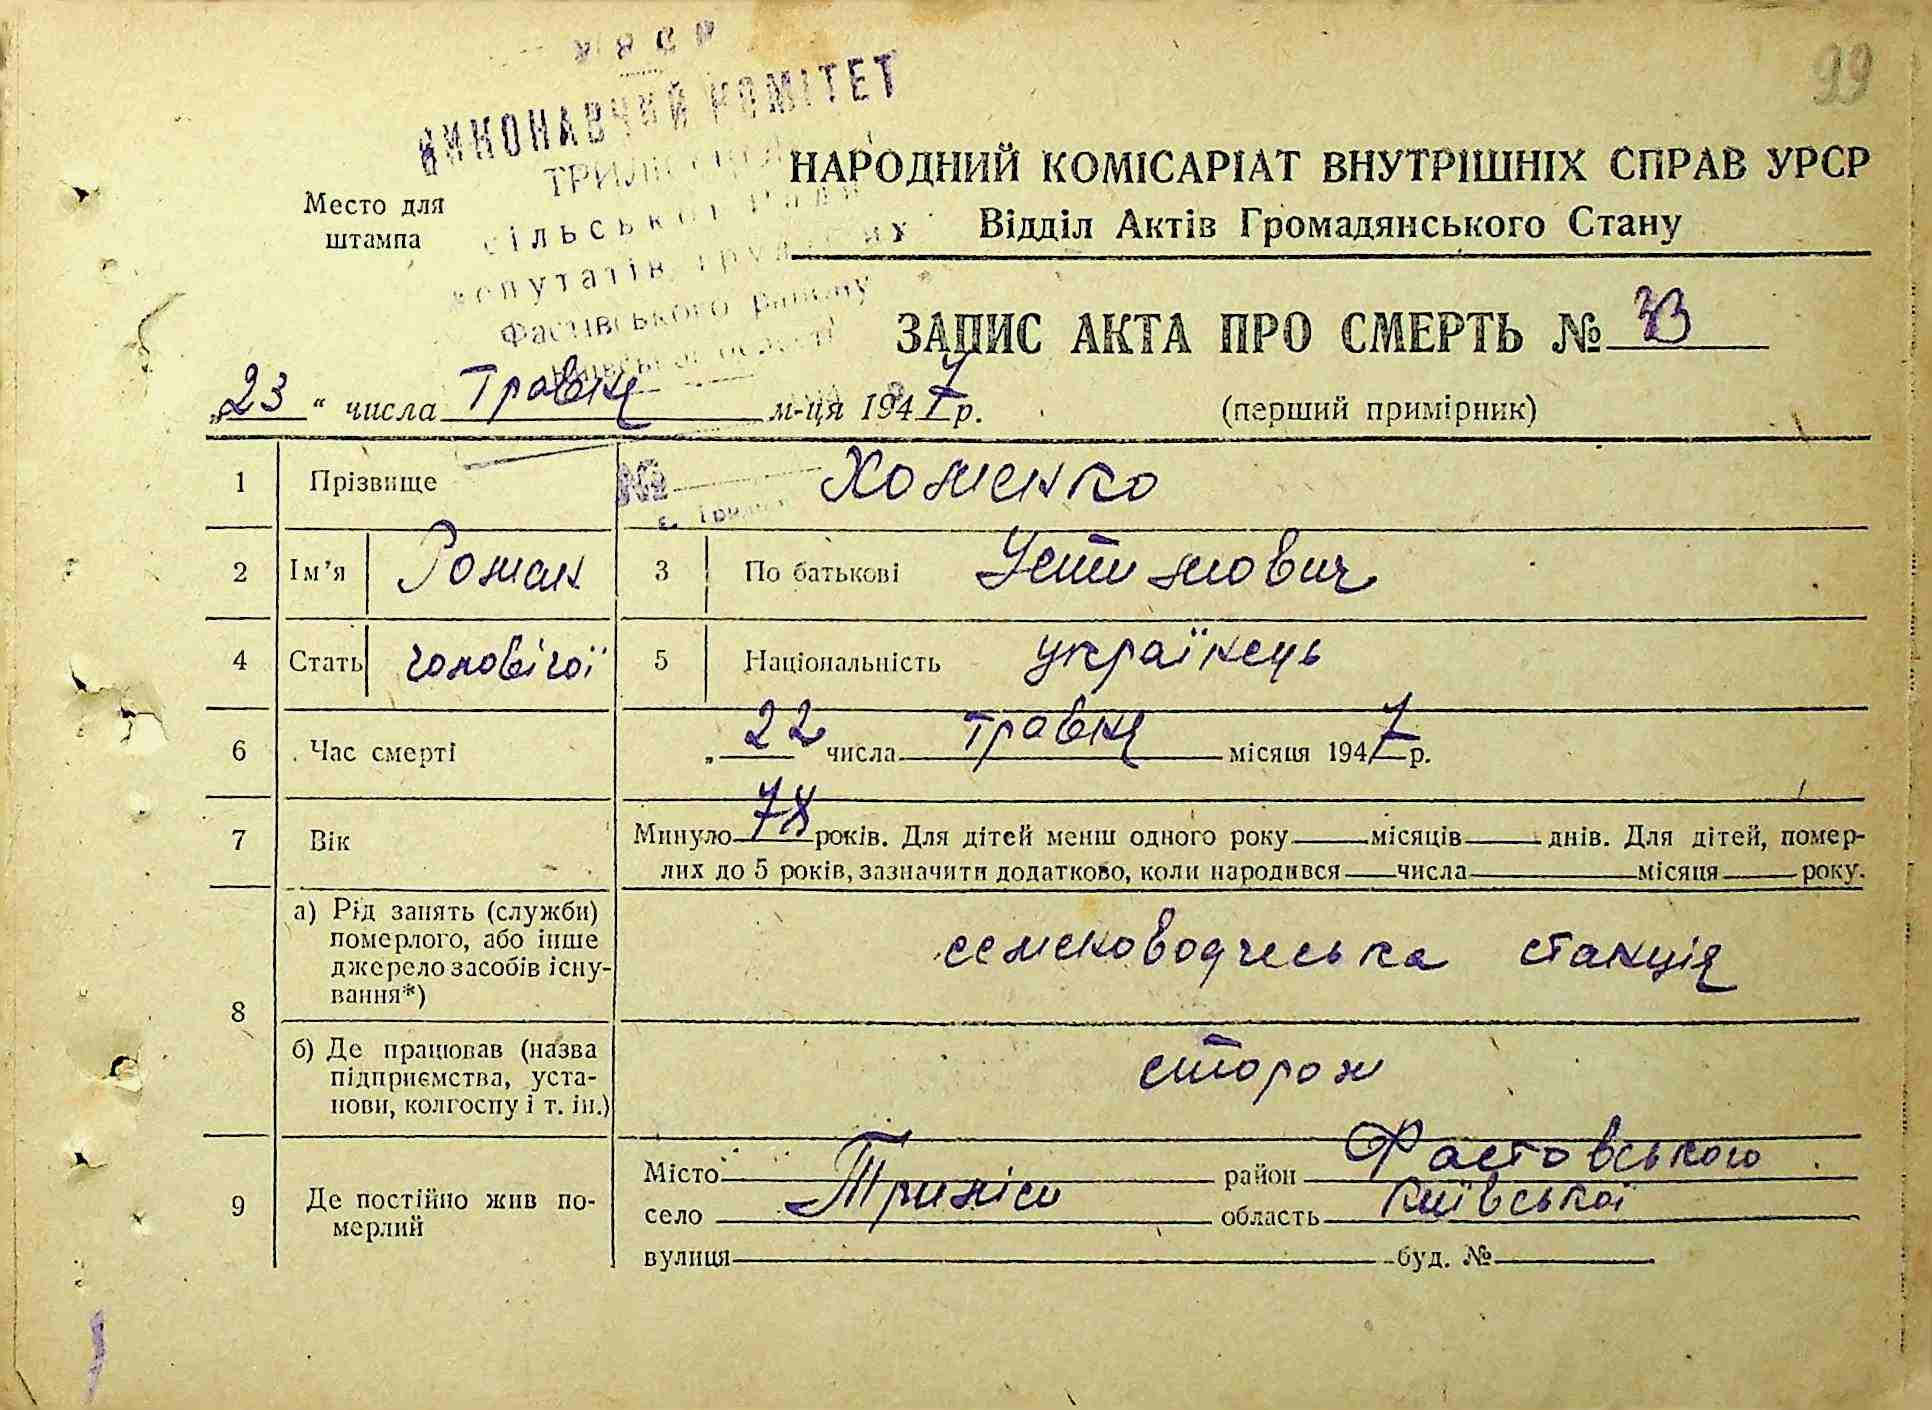 99
УРСР
ВИКОНАВЧИЙ КОМІТЕТ
ТРИЛІСЬКОЇ
сільської Ради
депутатів трудящих
Фастівського району
Київської області
Место для
штампа
НАРОДНИЙ КОМІСАРІАТ ВНУТРІШНІХ СПРАВ УРСР
Відділ Актів Громадянського Стану
ЗАПИС АКТА ПРО СМЕРТЬ № 33
„23“ числа Травня м-ця 1947 р.
(перший примірник)
1 Прізвище Хоменко
№
2 Ім’я Роман 3 По батькові Устимович
4 Стать чоловічої 5 Національність українець
6 Час смерті „22 числа травня місяця 1947 р.
7 Вік Минуло 78 років. Для дітей менш одного року місяців днів. Для дітей, помер-
лих до 5 років, зазначити додатково, коли народився числа місяця року.
8 а) Рід занять (служби)
померлого, або інше
джерело засобів існу-
вання*)
семеноводческа станція
б) Де працював (назва
підприємства, уста-
нови, колгоспу і т. ін.)
сторож
9 Де постійно жив по-
мерлий
Місто район Фастовського
село Триліси область київської
вулиця буд. №